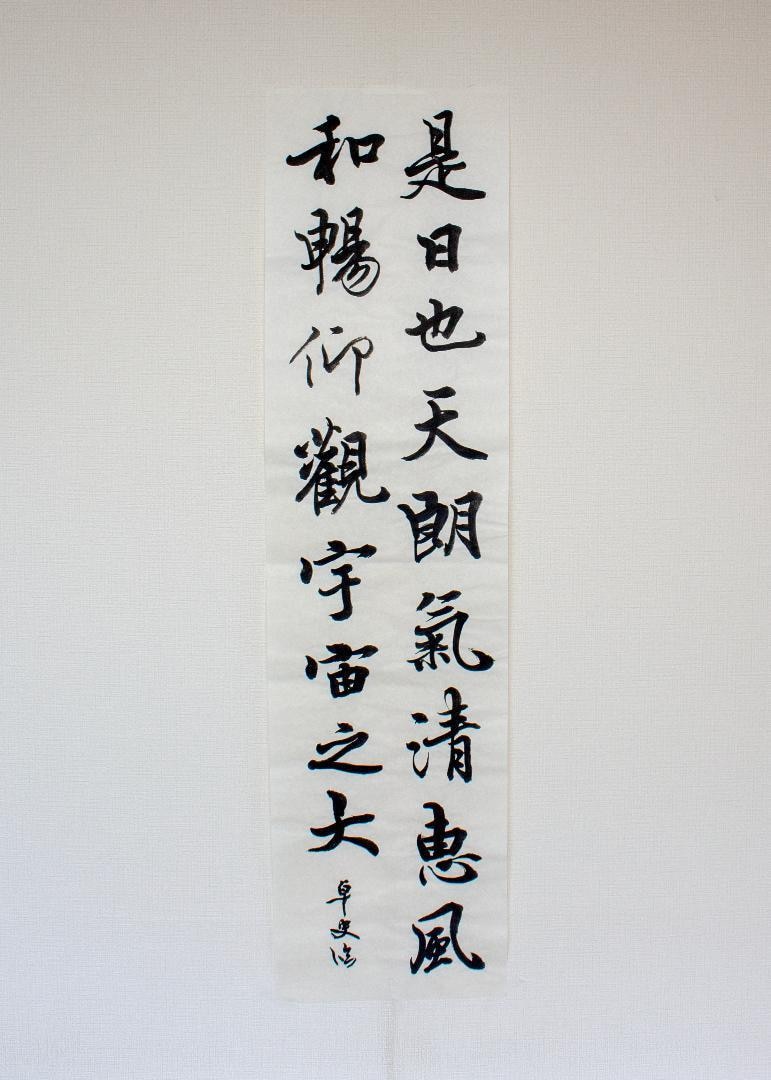 是日也天朗氣清恵風
和暢仰觀宇宙之大
卓史臨